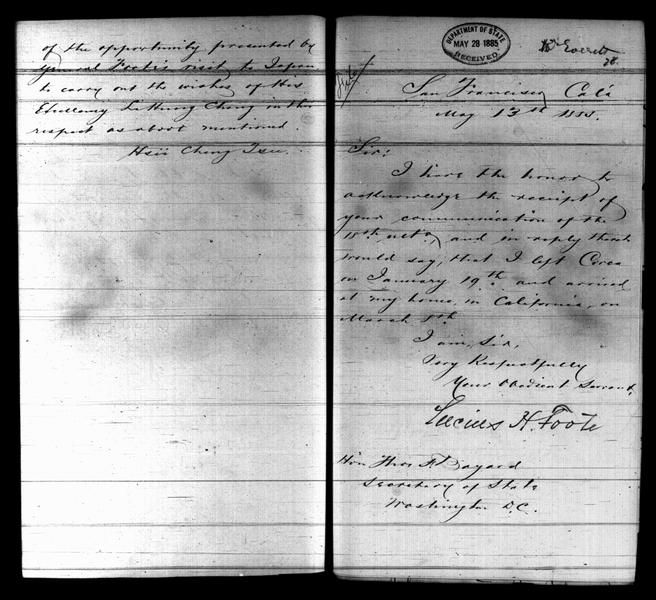 of the opportunity presented by
General Foote's visit to Japan
to carry out the wishes of His
Excellency Li Hung Chang in this
respect as above mentioned.
Hsü Cheng Tsu.
DEPARTMENT OF STATE
MAY 28 1885
RECEIVED
Mr Everett
28
San Francisco Cala
May 13th 1885.
Sir:
I have the honor to
acknowledge the receipt of
your communication of the
15th ulto, and in reply thereto
would say, that I left Corea
on January 19th and arrived
at my home, in California, on
March 8th
I am, Sir,
Very Respectfully
Your Obedient Servant,
Lucius H. Foote
Hon Thos F. Bayard
Secretary of State
Washington D.C.